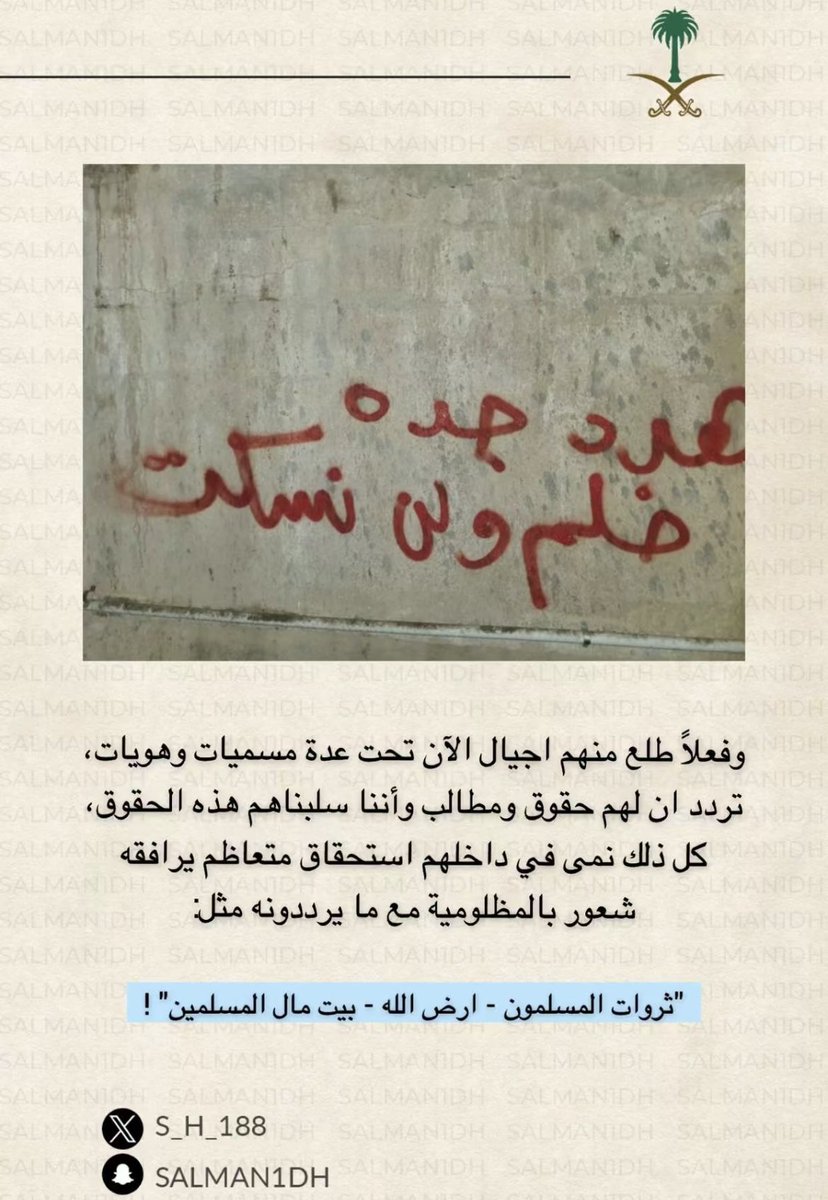 هدد جده
ظلم ولن نسكت
وفعلاً طلع منهم اجيال الآن تحت عدة مسميات وهويات،
تردد ان لهم حقوق ومطالب وأننا سلبناهم هذه الحقوق،
كل ذلك نمى في داخلهم استحقاق متعاظم يرافقه
شعور بالمظلومية مع ما يرددونه مثل:
"ثروات المسلمون - ارض الله - بيت مال المسلمين" !
S_H_188
SALMAN1DH